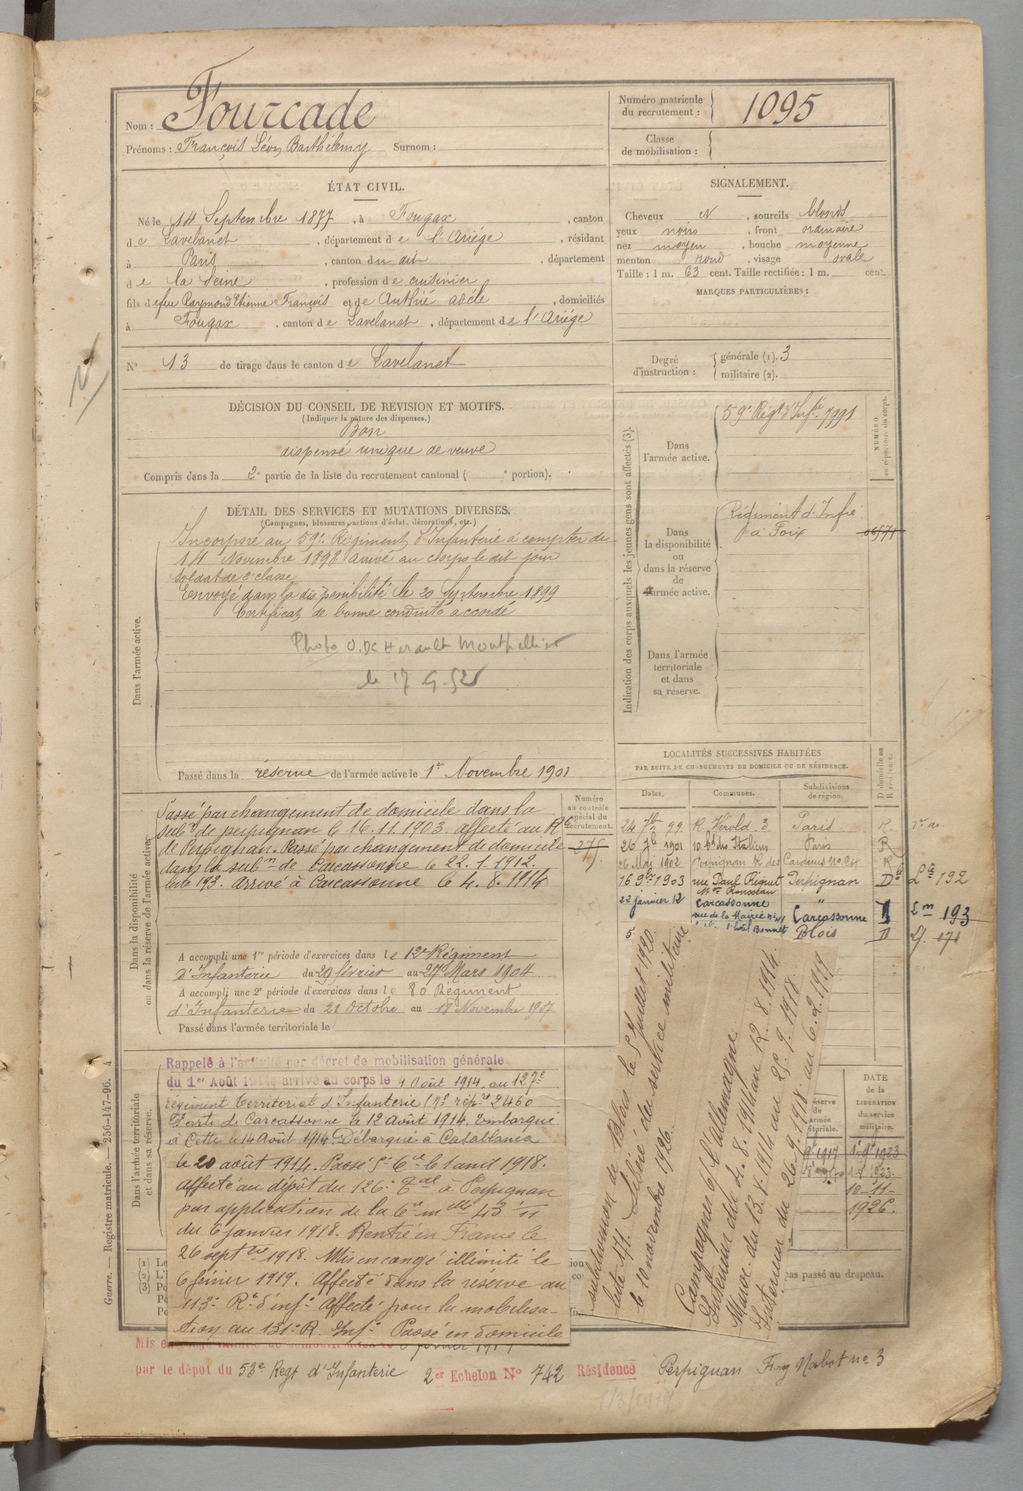 Nom : Fourcade
Prénoms : François Léon Barthélemy Surnom :
Numéro matricule du recrutement : 1095
Classe de mobilisation :
ÉTAT CIVIL.
Né le 14 Septembre 1877, à Fougax, canton
de Lavelanet, département de l'Ariége, résidant
à Paris, canton du dit, département
de la Seine, profession de cuisinier
fils de feu Raymond Etienne François et de Authié adèle, domiciliés
à Fougax, canton de Lavelanet, département de l'Ariége
N° 13 de tirage dans le canton de Lavelanet
SIGNALEMENT.
Cheveux N, sourcils blonds
yeux noirs, front ordinaire
nez moyen, bouche moyenne
menton rond, visage ovale
Taille : 1 m. 63 cent. Taille rectifiée : 1 m. cent.
MARQUES PARTICULIÈRES :
Degré d'instruction : générale (1). 3
militaire (2).
DÉCISION DU CONSEIL DE REVISION ET MOTIFS.
(Indiquer la nature des dispenses.)
Bon
dispensé unique de veuve
Compris dans la 2e partie de la liste du recrutement cantonal ( e portion).
Indication des corps auxquels les jeunes gens sont affectés (3).
Dans l'armée active.
59e Régt d'Infie 7991
NUMÉRO
Dans la disponibilité ou dans la réserve de l'armée active.
Régiment d'Infie
à Foix
Dans l'armée territoriale et dans sa réserve.
DÉTAIL DES SERVICES ET MUTATIONS DIVERSES.
(Campagnes, blessures, actions d'éclat, décorations, etc.)
Dans l'armée active.
Incorporé au 59e Régiment d'Infanterie à compter du
14 Novembre 1898 arrivé au corps le dit jour
soldat de 2e classe
Envoyé dans la disponibilité le 20 Septembre 1899
Certificat de bonne conduite accordé
Photo O.DC Herault Montpellier
le 17 9.52
Passé dans la réserve de l'armée active le 1er Novembre 1901
Dans la disponibilité ou dans la réserve de l'armée active.
Passé par changement de domicile dans la
subon de perpignan le 16.11.1903 affecté au Rt
de Perpignan. Passé par changement de domicile
dans la subon de Carcassonne le 22.1.1912.
liste 193. arrivé à Carcassonne le 4.8.1914
Numéro au contrôle spécial du recrutement.
A accompli une 1re période d'exercices dans le 12e Régiment
d'Infanterie du 29 février au 27 Mars 1904
A accompli une 2e période d'exercices dans le 80 Régiment
d'Infanterie du 21 Octobre au 18 Novembre 1907
Passé dans l'armée territoriale le
LOCALITÉS SUCCESSIVES HABITÉES
PAR SUITE DE CHANGEMENTS DE DOMICILE OU DE RÉSIDENCE.
Dates. Communes. Subdivisions de région.
24 7bre 99 R. Hérold 3 Paris R
26 7bre 1901 10 bd des Italiens Paris R
26 Mai 1902 Perpignan R des Cardeurs no 24 R
16 9bre 1903 rue Paul Riquet Perpignan Dle Lte 192
22 janvier 12 Carcassonne
rue de la Mairie Carcassonne D Lm 193
Blois D Lj. 171
Dans l'armée territoriale et dans sa réserve.
Rappelé à l'activité par décret de mobilisation générale
du 1er Août 1914 arrivé au corps le 4 Août 1914. au 127e
régiment Territorial d'Infanterie
Parti de Carcassonne le 12 Août 1914. Embarqué
à Cette le 14 Août 1914 Débarqué à Casablanca
le 20 août 1914. Passé 5e Cie le 1 avril 1918.
affecté au dépôt du 126e Tal à Perpignan
par application de la Cre mlle 43
du 6 janvier 1918. Rentré en France le
26 septbre 1918. Mis en congé illimité le
6 février 1919. Affecté dans la réserve au
113e Rt d'infie Affecté pour la mobilisa-
tion au 131e R. Infie Passé en domicile
subdivision de Blois le 5 Juillet 1920.
liste 171. Libéré du service militaire
le 10 novembre 1926.
Campagnes c/ l'allemagne
Intérieur du 4.8.1914 au 12.8.1914
Maroc du 13.8.1914 au 25.9.1918
Intérieur du 26.9.1918 au 6.2.1919
DATE de la LIBÉRATION du service militaire.
10-11-1926.
pas passé au drapeau.
Guerre. — Registre matricule. — 256-147-96. 4
par le dépôt du 53e Regt d'Infanterie 2er Echelon N° 742 Résidence Perpignan Frcy Nabot no 3